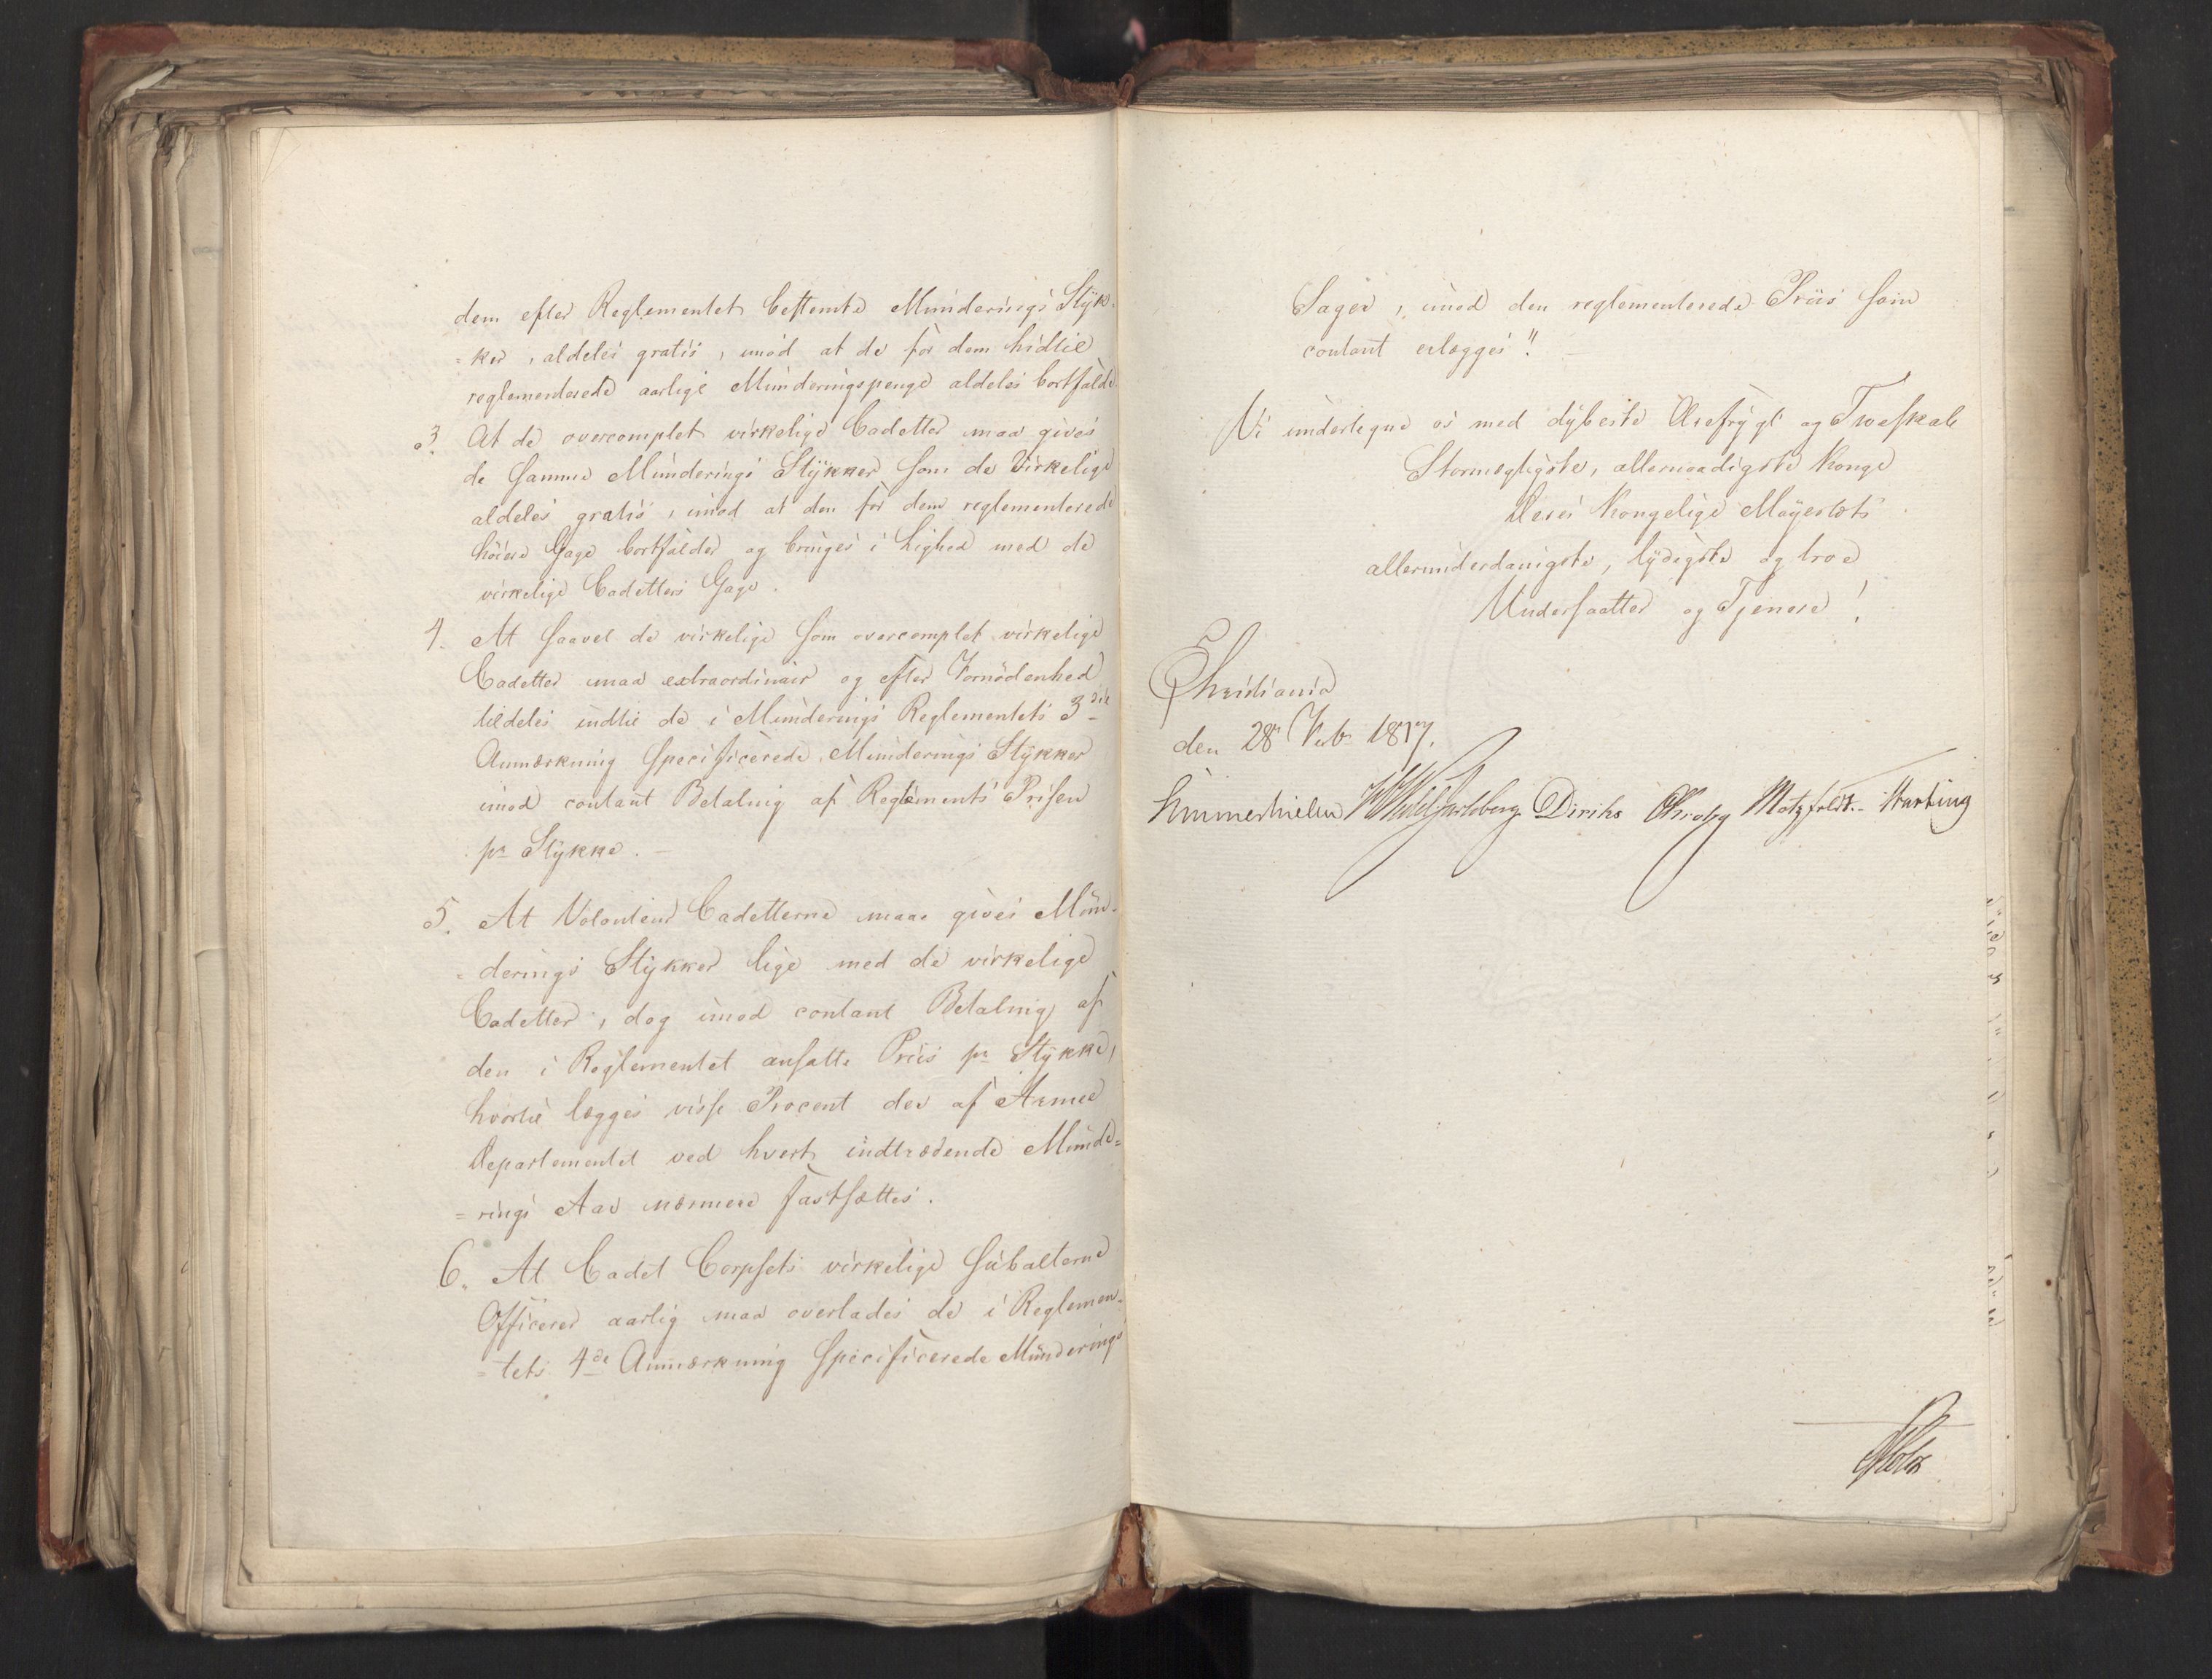 dem efter Reglementet bestemte Munderings Styk-
=ker, aldeles gratis, imod at de for dem hidtil
reglementerede aarlige Munderingspenge aldeles bortfalde
3. At de overcomplet virkelige Cadetter maa gives
de samme Munderings Stykker som de Virkelige
aldeles gratis, imod at den for dem reglementerede
höiere Gage bortfalder og bringes i Lighed med de
virkelige Cadetters Gage.
4. At saavel de virkelige som overcomplet virkelige
Cadetter maa extraordinair og efter Fornödenhed
tildeles indtil de i Munderings Reglementets 3die
Anmærkning specificerede Munderings Stykker
imod contant Betaling af Reglements Prisen
pr Stykke. —
5. At Volonteur Cadetterne maae gives Mun-
=derings Stykker lige med de virkelige
Cadetter, dog imod contant Betaling af
den i Reglementet ansatte Priis pr Stykke,
hvortil lægges visse Procent der af Armee
Departementet ved hvert indtrædende Munde=
=rings Aar nærmere fastsættes.
6. At Cadet Corpsets virkelige Subalterne
Officerer aarlig maa overlades de i Reglemen-
=tets 4de Anmærkning specificerede Munderings
Sager, imod den reglementerede Priis som
contant erlægges". —
Vi undertegne os med dybeste Ærefrygt og Troeskab
Stormægtigste, allernaadigste Konge
Deres Kongelige Mayestæts
allerunderdanigste, lydigste og troe
Undersaatter og Tjenere!
Christiania
den 28 Feb. 1817.
Hummerhielm Wedel Jarlsberg Diriks Krohg Motzfeldt. Harbing
Holst